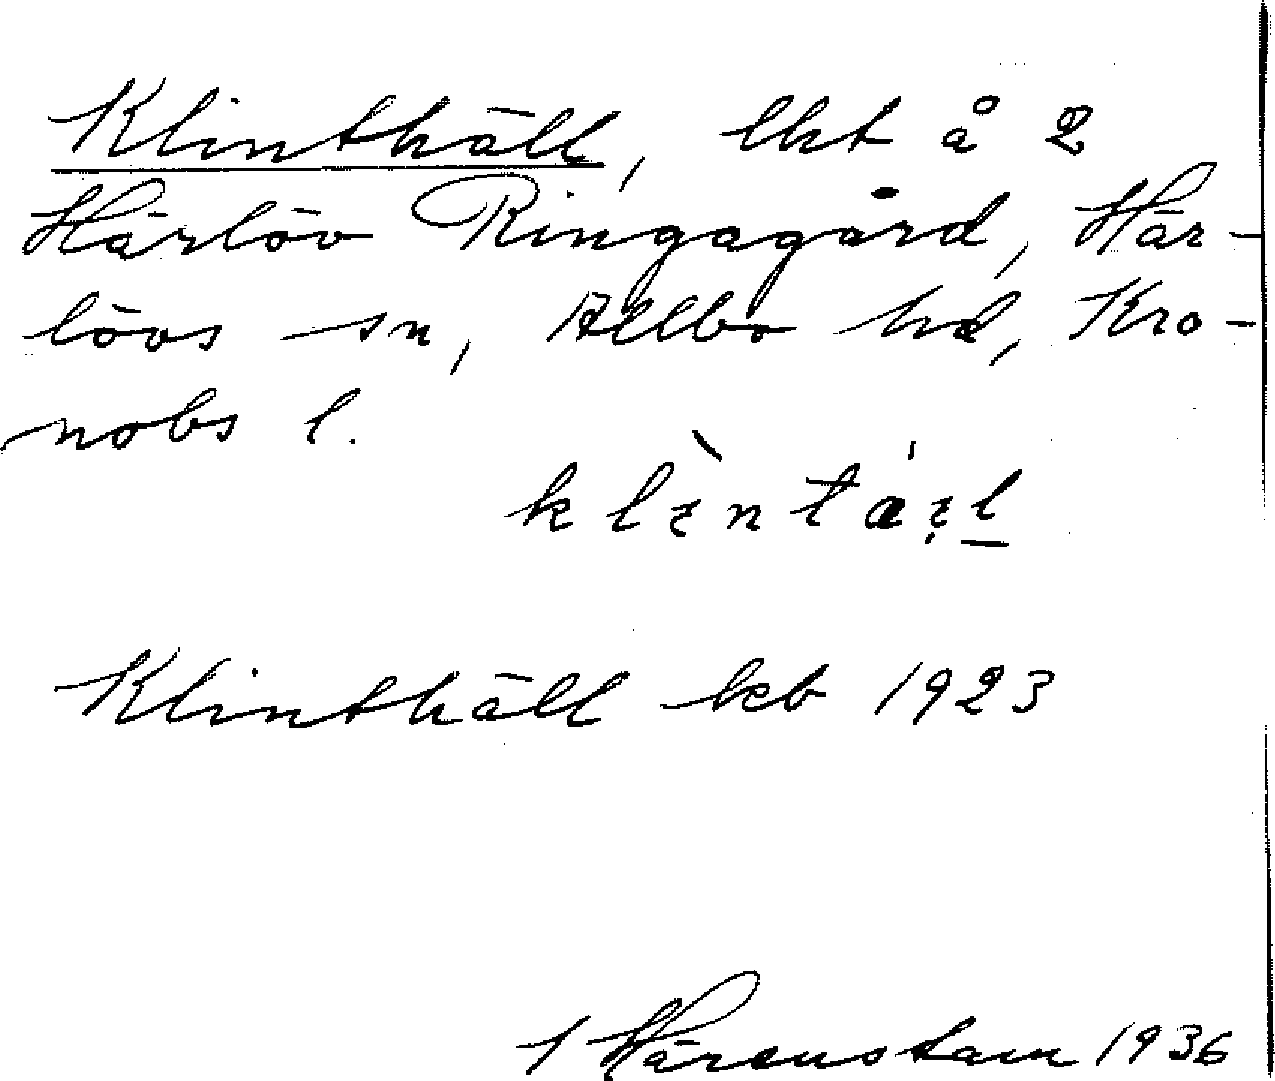 Klinthäll, lht å 2
Härlöv Ringagård, Här-
lövs sn, Allbo hd, Kro-
nobs l.
Klinthäll kb 1923
Härenstam 1936